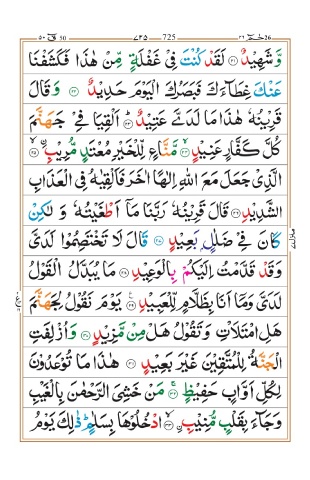 ق ٥٠ ٧٢٥ 725 حٰمٓ ٢٦
وَّشَهِيْدٌ ﴿٢١﴾ لَقَدْ كُنْتَ فِيْ غَفْلَةٍ مِّنْ هٰذَا فَكَشَفْنَا
عَنْكَ غِطَآءَكَ فَبَصَرُكَ الْيَوْمَ حَدِيْدٌ ﴿٢٢﴾ وَقَالَ
قَرِيْنُهٗ هٰذَا مَا لَدَيَّ عَتِيْدٌ ﴿٢٣﴾ اَلْقِيَا فِيْ جَهَنَّمَ
كُلَّ كَفَّارٍ عَنِيْدٍ ﴿٢٤﴾ مَّنَّاعٍ لِّلْخَيْرِ مُعْتَدٍ مُّرِيْبٍ ﴿٢٥﴾
الَّذِيْ جَعَلَ مَعَ اللهِ اِلٰهًا اٰخَرَ فَاَلْقِيٰهُ فِي الْعَذَابِ
الشَّدِيْدِ ﴿٢٦﴾ قَالَ قَرِيْنُهٗ رَبَّنَا مَا اَطْغَيْتُهٗ وَلٰكِنْ
كَانَ فِيْ ضَلٰلٍ بَعِيْدٍ ﴿٢٧﴾ قَالَ لَا تَخْتَصِمُوْا لَدَيَّ
وَقَدْ قَدَّمْتُ اِلَيْكُمْ بِالْوَعِيْدِ ﴿٢٨﴾ مَا يُبَدَّلُ الْقَوْلُ
لَدَيَّ وَمَا اَنَا بِظَلَّامٍ لِّلْعَبِيْدِ ﴿٢٩﴾ يَوْمَ نَقُوْلُ لِجَهَنَّمَ
هَلِ امْتَلَاْتِ وَتَقُوْلُ هَلْ مِنْ مَّزِيْدٍ ﴿٣٠﴾ وَاُزْلِفَتِ
الْجَنَّةُ لِلْمُتَّقِيْنَ غَيْرَ بَعِيْدٍ ﴿٣١﴾ هٰذَا مَا تُوْعَدُوْنَ
لِكُلِّ اَوَّابٍ حَفِيْظٍ ﴿٣٢﴾ مَنْ خَشِيَ الرَّحْمٰنَ بِالْغَيْبِ
وَجَآءَ بِقَلْبٍ مُّنِيْبٍ ﴿٣٣﴾ ادْخُلُوْهَا بِسَلٰمٍ ذٰلِكَ يَوْمُ